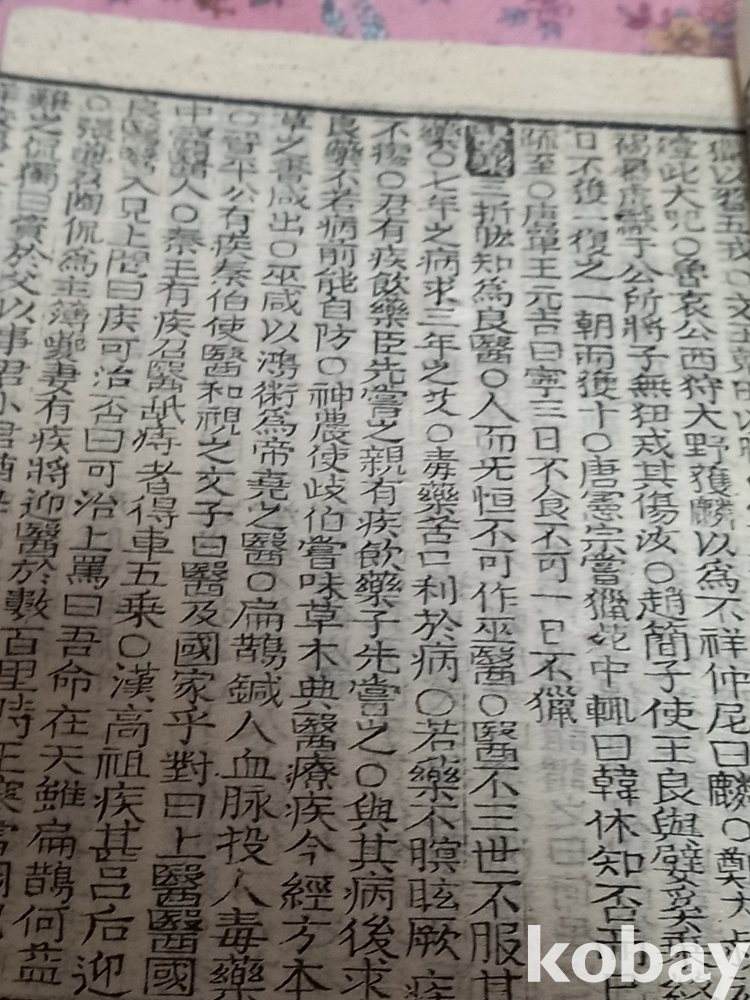 以為不祥仲尼曰麟○
澄此大咒○魯哀公西狩大野獲麟
獻于公所將子無狃戒其傷汝○趙簡子使王良與嬖奚乘
日不獲一復之一朝而獲十○唐憲宗嘗獵苑中輒曰韓休知否
疏至○唐單王元吉曰寧三日不食不可一日不獵
三折肱知為良醫○人而无恒不可作巫醫○醫不三世不服其
藥○七年之病求三年之艾○毒藥苦口利於病○若藥不瞑眩厥疾
不瘳○君有疾飲藥臣先嘗之親有疾飲藥子先嘗之○與其病後求
良藥不若病前能自防○神農使歧伯嘗味草木典醫療疾今經方本
草之書咸出○巫咸以鴻術為帝堯之醫○扁鵲鍼人血脉投人毒藥
○晉平公有疾秦伯使醫和視之文子曰醫及國家乎對曰上醫醫國
中醫醫人○秦王有疾召醫舐痔者得車五乗○漢高祖疾甚呂后迎
良醫醫入見上問曰疾可治否曰可治上罵曰吾命在天雖扁鵲何益
○張 君陶侃為主簿 妻有疾將迎醫於數百里時
難之侃獨曰資於父以事君小君